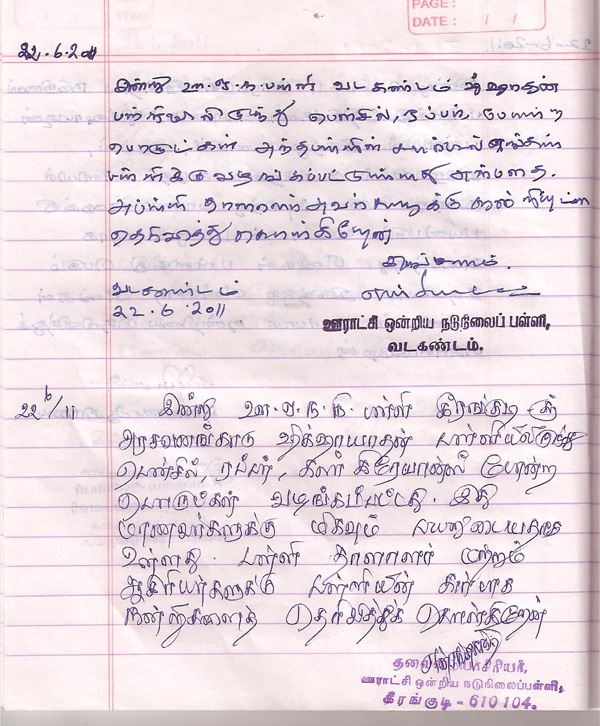 PAGE :
DATE : / /
22.6.2011
இன்று ஊ.ஒ.ந.பள்ளி வடகண்டம்
பள்ளியிலிருந்து பென்சில், ரப்பர், போன்ற
பொருட்கள் அந்த பள்ளியின் சார்பில் எங்கள்
பள்ளிக்கு வழங்கப்பட்டுள்ளது
அப்பள்ளி தாளாளர் அவர்களுக்கு
தெரிவித்து கொள்கிறேன்
வடகண்டம்
22.6.2011
ஊராட்சி ஒன்றிய நடுநிலைப் பள்ளி,
வடகண்டம்.
22/6/11
இன்று ஊ.ஒ.ந.நி. பள்ளி கீரங்குடி க்கு
அரசவனங்காடு பள்ளியிலிருந்து
பென்சில், ரப்பர், கலர் கிரேயான்ஸ் போன்ற
பொருட்கள் வழங்கப்பட்டது. இது
மாணவர்களுக்கு மிகவும் பயனுடையதாக
உள்ளது. பள்ளி தாளாளர் மற்றும்
ஆசிரியர்களுக்கு பள்ளியின் சார்பாக
நன்றிகளைத் தெரிவித்துக் கொள்கிறேன்
தலைமையாசிரியர்,
ஊராட்சி ஒன்றிய நடுநிலைப்பள்ளி,
கீரங்குடி - 610 104.